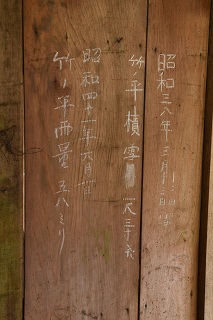 昭和三八年三月
竹ノ平積雪 一尺三寸
昭和四十一年六月
竹ノ平雨量 五八ミリ